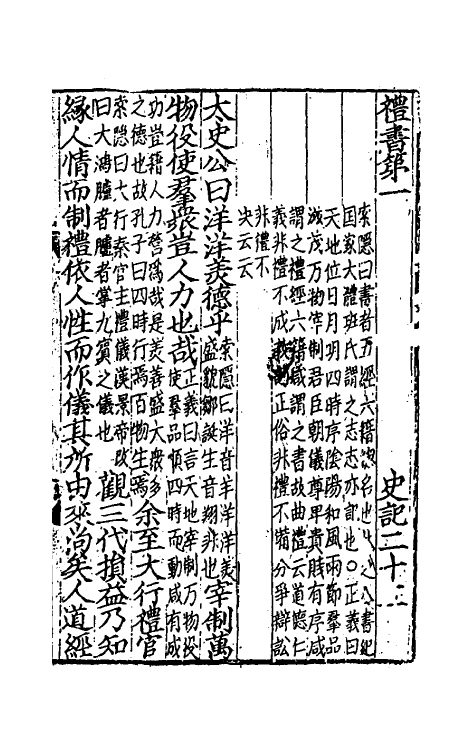 禮書第一 史記二十三
索隱曰書者五經六籍總名也此之八書紀
国家大體班氏謂之志志亦記也○正義曰
天地位日月明四時序陰陽和風雨節羣品
滋茂萬物宰制君臣朝儀尊卑貴賤有序咸
謂之禮經六籍咸謂之書故曲禮云道德仁
義非禮不成教訓正俗非禮不備分爭辯訟
非禮不
决云云
太史公曰洋洋美德乎索隱曰洋音羊洋洋美盛貌鄒誕生音翔非也宰制萬
物役使羣衆豈人力也哉正義曰言天地宰制万物役使羣品順四時而動咸有成
功豈藉人力營爲哉是美善盛大衆多之德也故孔子曰四時行焉百物生焉余至大行禮官
索隐曰大行秦官主禮儀漢景帝改曰大鴻臚臚者掌九賓之儀也觀三代損益乃知
緣人情而制禮依人性而作儀其所由來尚矣人道經